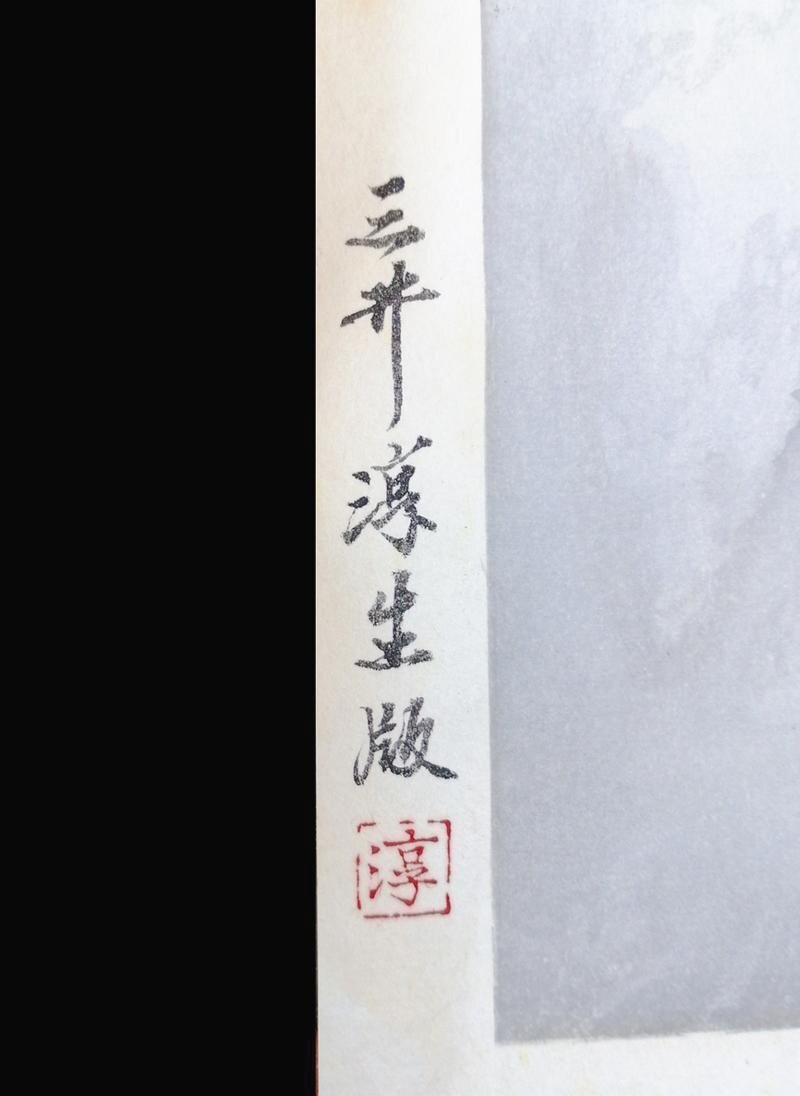 三井淳生版
淳